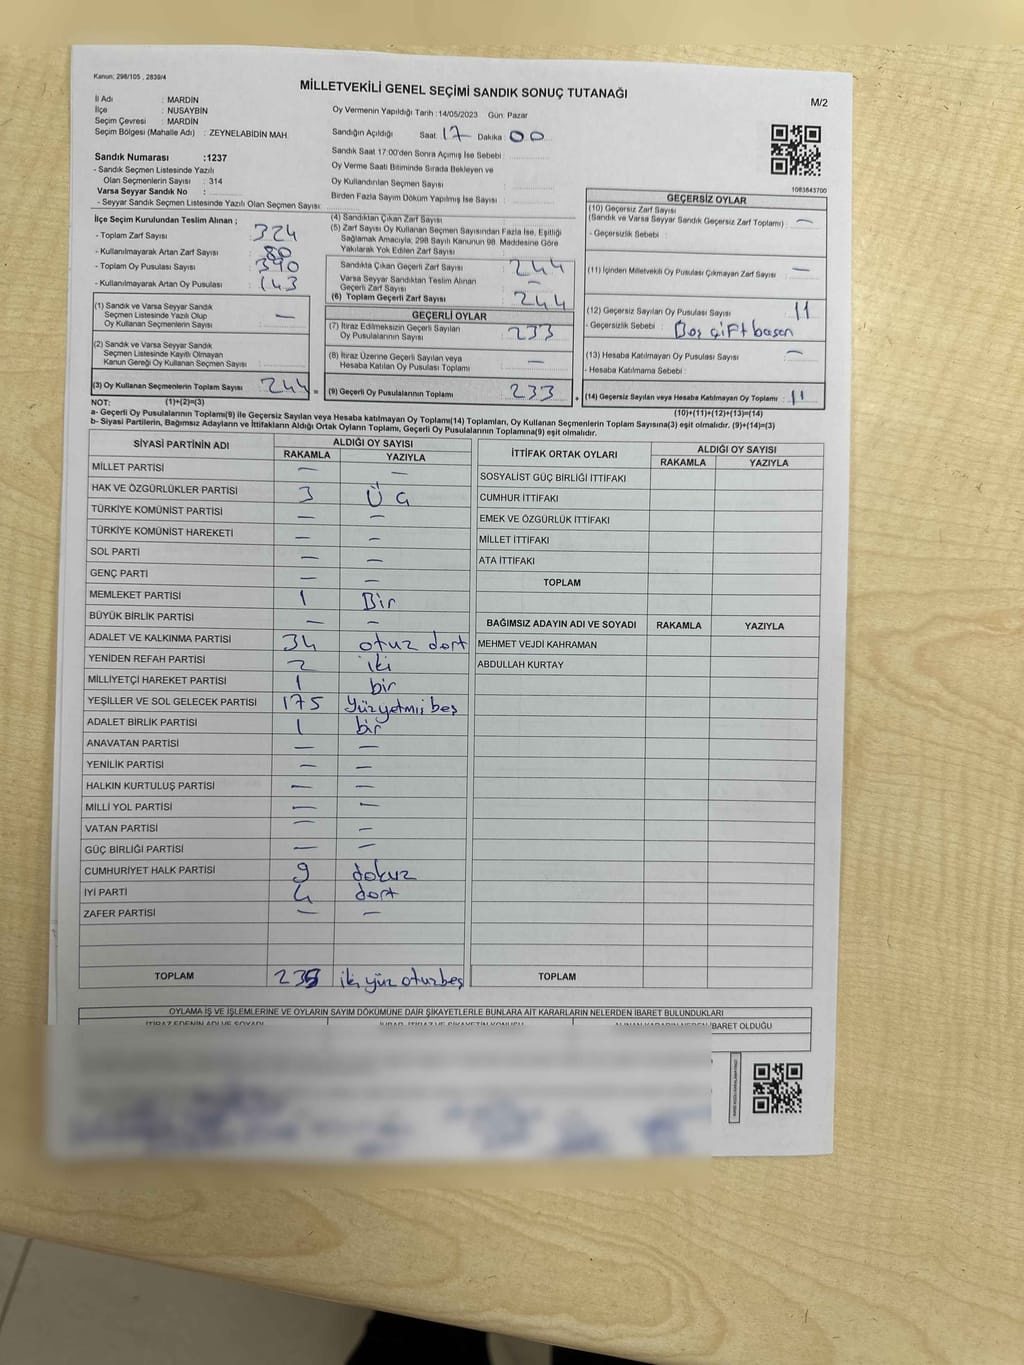 Kanun; 298/105 , 2839/4
MİLLETVEKİLİ GENEL SEÇİMİ SANDIK SONUÇ TUTANAĞI
M/2
İl Adı : MARDİN
İlçe : NUSAYBİN
Seçim Çevresi : MARDİN
Seçim Bölgesi (Mahalle Adı) : ZEYNELABİDİN MAH.
Sandık Numarası :1237
- Sandık Seçmen Listesinde Yazılı
Olan Seçmenlerin Sayısı : 314
Varsa Seyyar Sandık No :
- Seyyar Sandık Seçmen Listesinde Yazılı Olan Seçmen Sayısı:
Oy Vermenin Yapıldığı Tarih :14/05/2023 Gün: Pazar
Sandığın Açıldığı Saat: 17 Dakika: 00
Sandık Saat 17:00'den Sonra Açımış İse Sebebi :
Oy Verme Saati Bitiminde Sırada Bekleyen ve
Oy Kullandırılan Seçmen Sayısı :
Birden Fazla Sayım Döküm Yapılmış İse Sayısı :
1083843700
İlçe Seçim Kurulundan Teslim Alınan ;
- Toplam Zarf Sayısı : 324
- Kullanılmayarak Artan Zarf Sayısı : 80
- Toplam Oy Pusulası Sayısı : 390
- Kullanılmayarak Artan Oy Pusulası : 143
(1) Sandık ve Varsa Seyyar Sandık
Seçmen Listesinde Yazılı Olup
Oy Kullanan Seçmenlerin Sayısı : —
(2) Sandık ve Varsa Seyyar Sandık
Seçmen Listesinde Kayıtlı Olmayan
Kanun Gereği Oy Kullanan Seçmen Sayısı :
(3) Oy Kullanan Seçmenlerin Toplam Sayısı : 244 =
(4) Sandıktan Çıkan Zarf Sayısı :
(5) Zarf Sayısı Oy Kullanan Seçmen Sayısından Fazla İse, Eşitliği
Sağlamak Amacıyla, 298 Sayılı Kanunun 98. Maddesine Göre
Yakılarak Yok Edilen Zarf Sayısı :
Sandıkta Çıkan Geçerli Zarf Sayısı : 244
Varsa Seyyar Sandıktan Teslim Alınan
Geçerli Zarf Sayısı : —
(6) Toplam Geçerli Zarf Sayısı : 244
GEÇERLİ OYLAR
(7) İtiraz Edilmeksizin Geçerli Sayılan
Oy Pusulalarının Sayısı : 233
(8) İtiraz Üzerine Geçerli Sayılan veya
Hesaba Katılan Oy Pusulası Toplamı : —
(9) Geçerli Oy Pusulalarının Toplamı : 233 +
GEÇERSİZ OYLAR
(10) Geçersiz Zarf Sayısı
(Sandık ve Varsa Seyyar Sandık Geçersiz Zarf Toplamı) : —
- Geçersizlik Sebebi :
(11) İçinden Milletvekili Oy Pusulası Çıkmayan Zarf Sayısı : —
(12) Geçersiz Sayılan Oy Pusulası Sayısı : 11
- Geçersizlik Sebebi : Boş çift basan
(13) Hesaba Katılmayan Oy Pusulası Sayısı : —
- Hesaba Katılmama Sebebi :
(14) Geçersiz Sayılan veya Hesaba Katılmayan Oy Toplamı : 11
NOT: (1)+(2)=(3) (10)+(11)+(12)+(13)=(14)
a- Geçerli Oy Pusulalarının Toplamı(9) ile Geçersiz Sayılan veya Hesaba katılmayan Oy Toplamı(14) Toplamları, Oy Kullanan Seçmenlerin Toplam Sayısına(3) eşit olmalıdır. (9)+(14)=(3)
b- Siyasi Partilerin, Bağımsız Adayların ve İttifakların Aldığı Ortak Oyların Toplamı, Geçerli Oy Pusulalarının Toplamına(9) eşit olmalıdır.
SİYASİ PARTİNİN ADI ALDIĞI OY SAYISI
RAKAMLA YAZIYLA
MİLLET PARTİSİ — —
HAK VE ÖZGÜRLÜKLER PARTİSİ 3 ÜG
TÜRKİYE KOMÜNİST PARTİSİ — —
TÜRKİYE KOMÜNİST HAREKETİ — —
SOL PARTİ — —
GENÇ PARTİ — —
MEMLEKET PARTİSİ 1 Bir
BÜYÜK BİRLİK PARTİSİ — —
ADALET VE KALKINMA PARTİSİ 34 otuz dort
YENİDEN REFAH PARTİSİ 2 iki
MİLLİYETÇİ HAREKET PARTİSİ 1 bir
YEŞİLLER VE SOL GELECEK PARTİSİ 175 Yüzyetmiş beş
ADALET BİRLİK PARTİSİ 1 bir
ANAVATAN PARTİSİ — —
YENİLİK PARTİSİ — —
HALKIN KURTULUŞ PARTİSİ — —
MİLLİ YOL PARTİSİ — —
VATAN PARTİSİ — —
GÜÇ BİRLİĞİ PARTİSİ — —
CUMHURİYET HALK PARTİSİ 9 dokuz
İYİ PARTİ 4 dort
ZAFER PARTİSİ — —
TOPLAM 235 iki yüz oturbeş
İTTİFAK ORTAK OYLARI ALDIĞI OY SAYISI
RAKAMLA YAZIYLA
SOSYALİST GÜÇ BİRLİĞİ İTTİFAKI
CUMHUR İTTİFAKI
EMEK VE ÖZGÜRLÜK İTTİFAKI
MİLLET İTTİFAKI
ATA İTTİFAKI
TOPLAM
BAĞIMSIZ ADAYIN ADI VE SOYADI RAKAMLA YAZIYLA
MEHMET VEJDİ KAHRAMAN
ABDULLAH KURTAY
TOPLAM
OYLAMA İŞ VE İŞLEMLERİNE VE OYLARIN SAYIM DÖKÜMÜNE DAİR ŞİKAYETLERLE BUNLARA AİT KARARLARIN NELERDEN İBARET BULUNDUKLARI
İTİRAZ EDENİN ADI VE SOYADI İBARET OLDUĞU